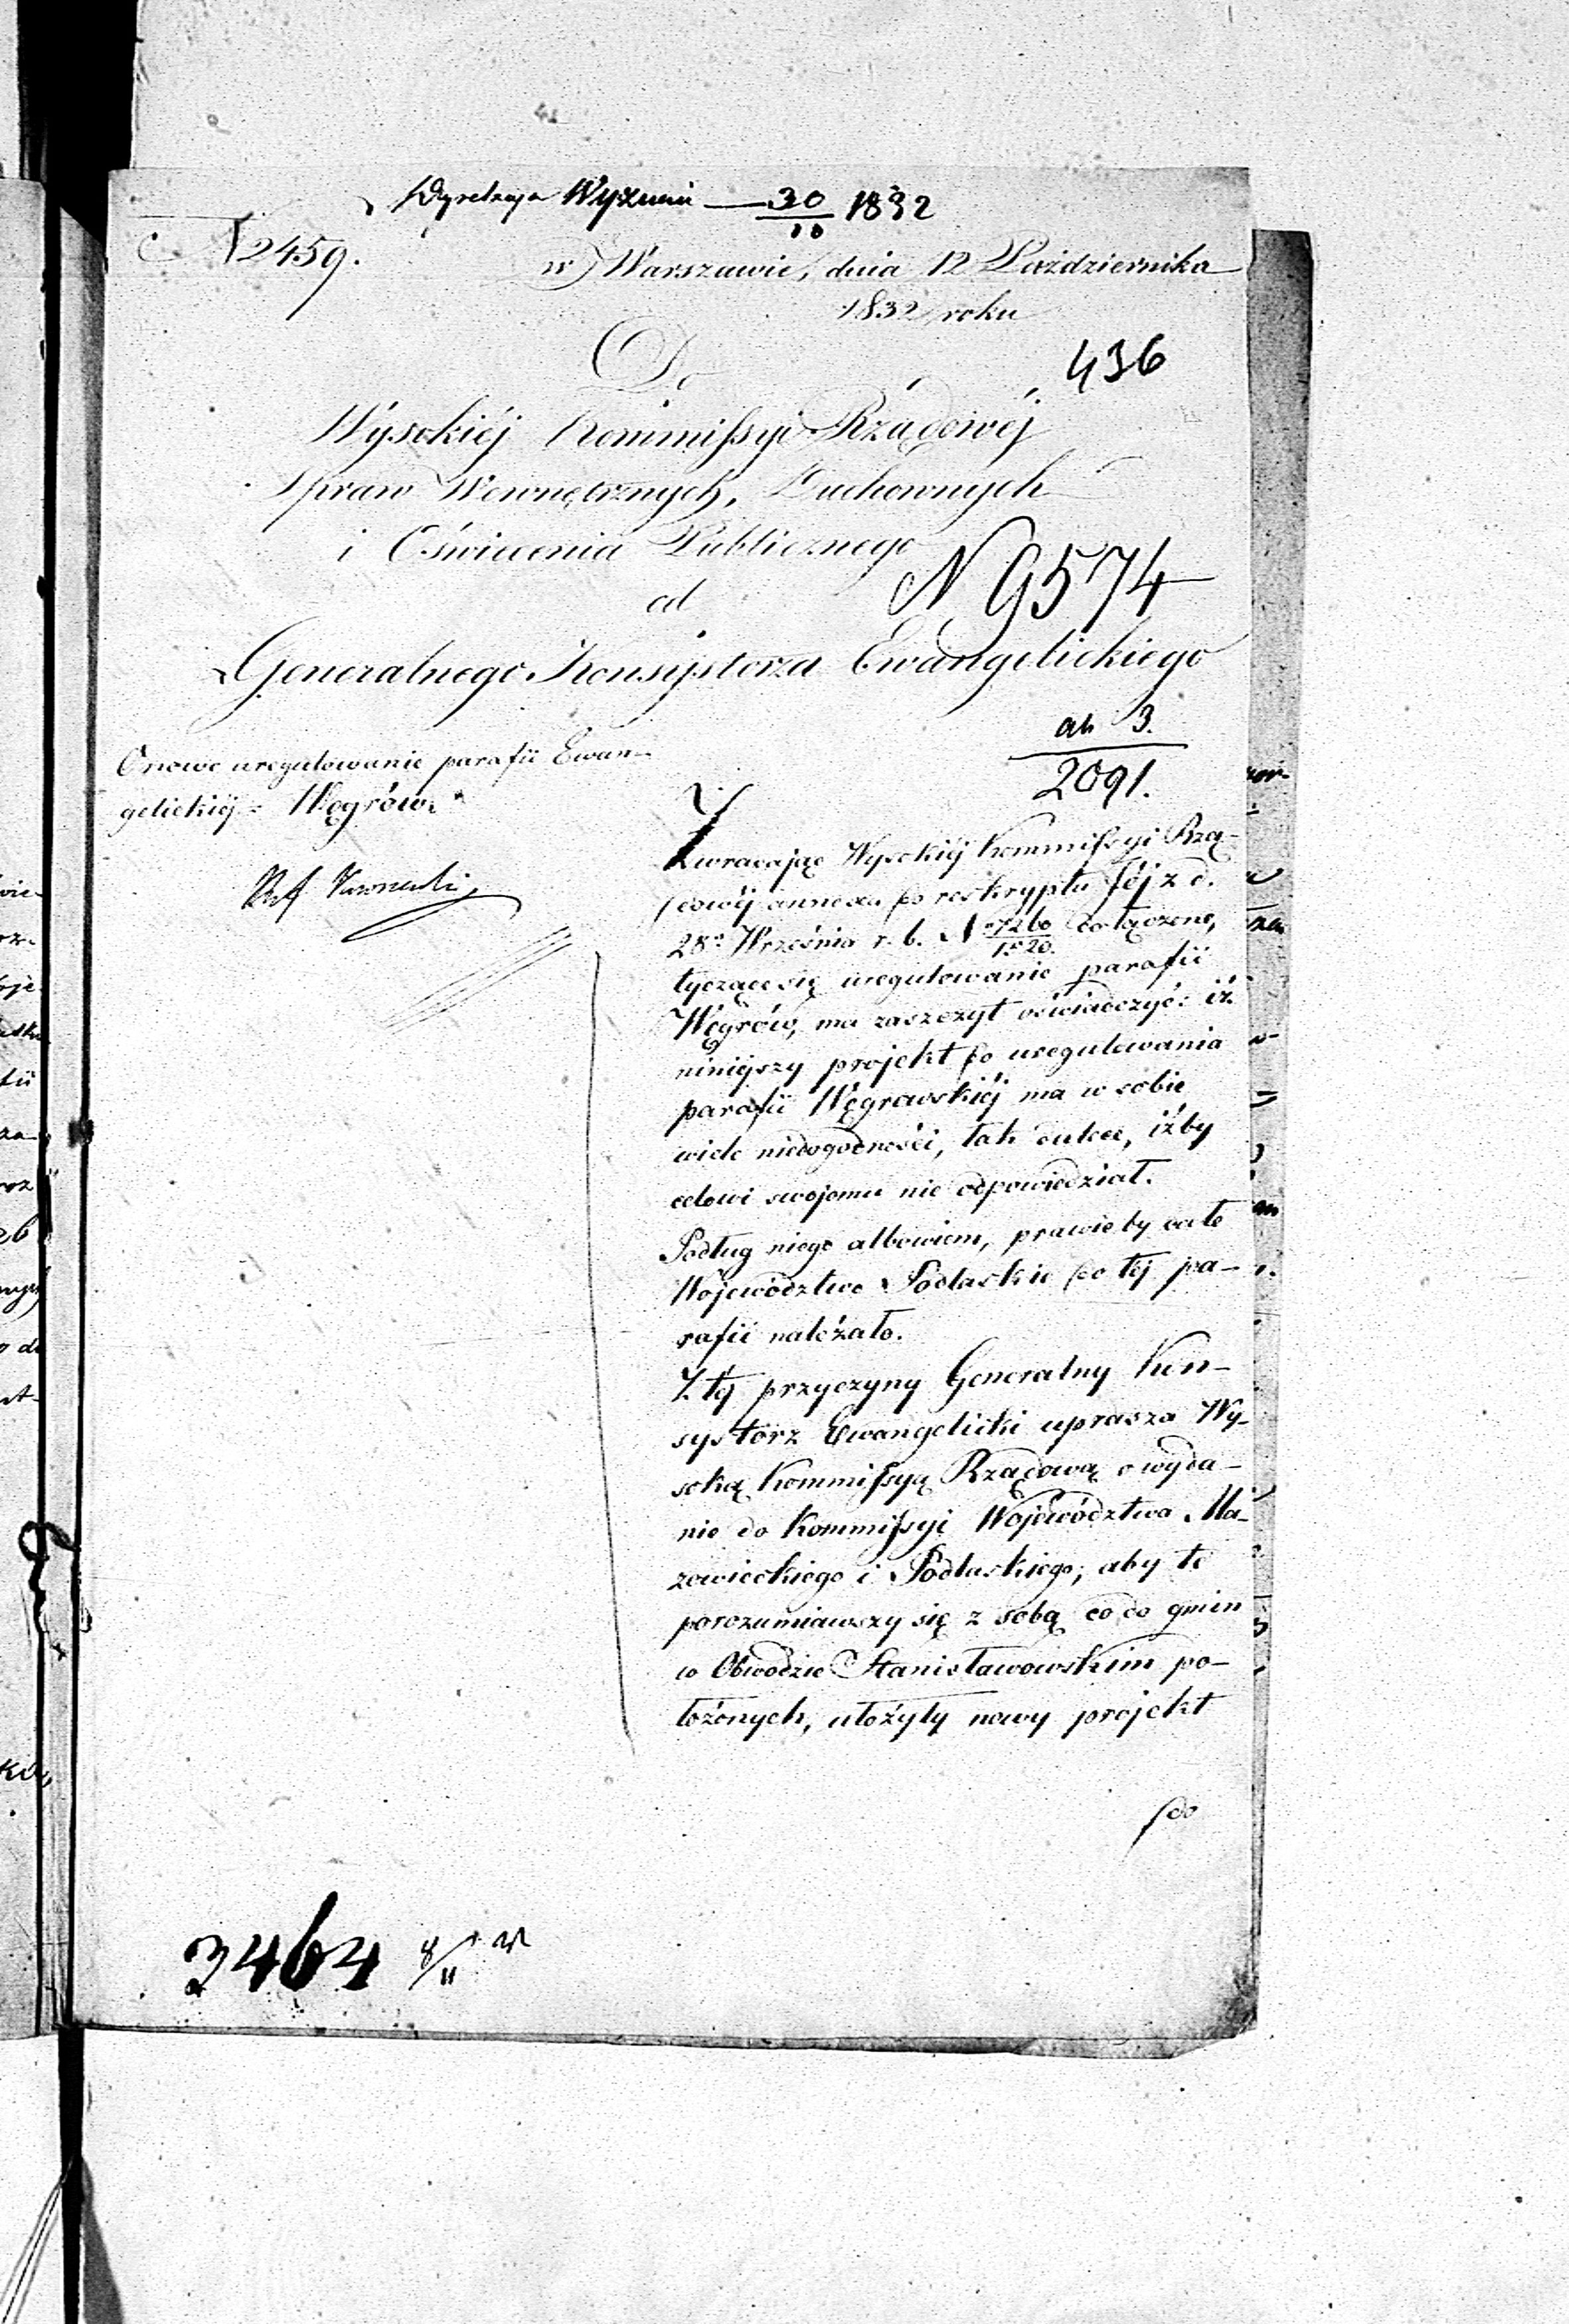 Wyznań — 30/10 1832
N 2459.
w Warszawie, dnia 12 Października
1832 roku
436
Do
Wysokiéj Kommissyi Rządowéj
Spraw Wewnętrznych, Duchownych
i Oświecenia Publicznego
N 9574
od
Generalnego Konsystorza Ewangelickiego
ab 3.
2091.
O nowe uregulowanie parafii Ewan-
gelickiéj Węgrów.
Zwracając Wysokiéj Kommissyi Rzą-
dowéj annexa do reskryptu Jéj z d.
28º Września r. b. N 7260/1520. dołączone,
tyczące się uregulowanie parafii
Węgrów, ma zaszczyt oświadczyć: iż
ninijszy projekt do uregulowania
parafii Węgrowskiéj ma w sobie
wiele niedogodności, tak dalece, iżby
celowi swojemu nie odpowiedział.
Podług niego albowiem, prawie by całe
Województwo Podlaskie do téj pa-
rafii należało.
Z téj przyczyny Generalny Kon-
systorz Ewangelicki uprasza Wy-
soką Kommissyą Rządową o wyda-
nie do Kommissyi Województwa Ma-
zowieckiego i Podlaskiego, aby te
porozumiawszy się z sobą co do gmin
w Obwodzie Stanisławowskim po-
łożonych, ułożyły nowy projekt
do
3464 8/11